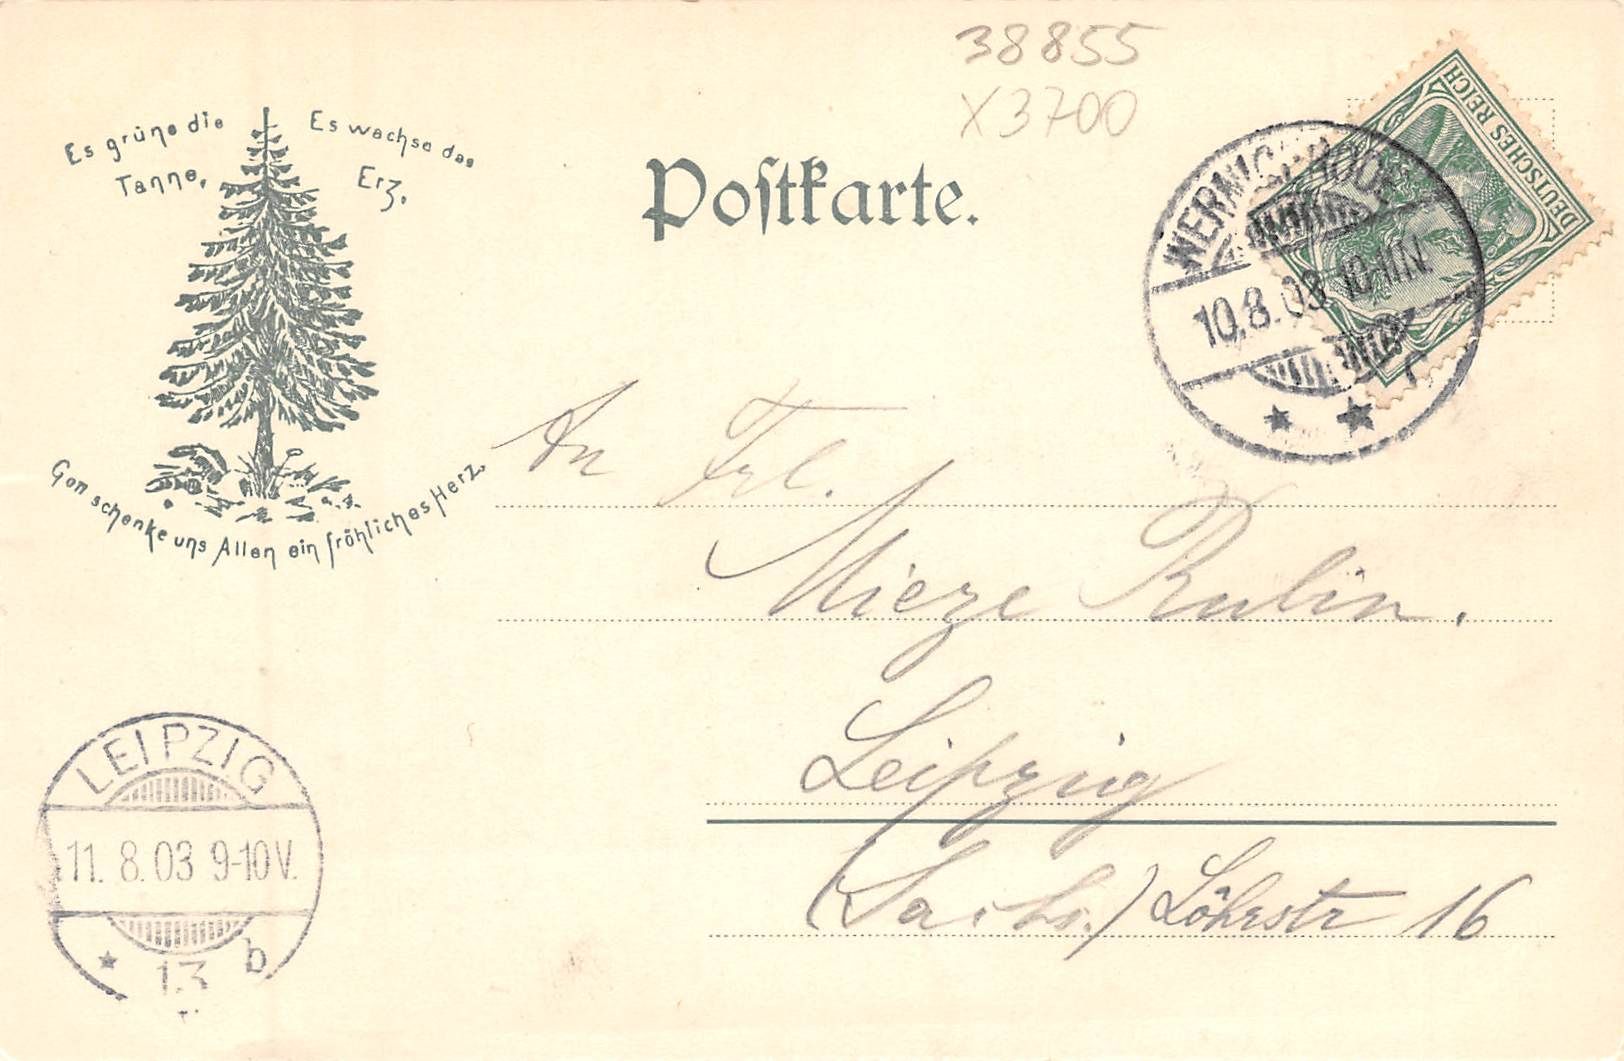 38855
X3700
Es grüne die
Tanne,
Es wachse das
Erz,
Gott schenke uns Allen ein fröhliches Herz.
Postkarte.
DEUTSCHES REICH
10.8.03 10-11N.
An Frl.
Mieze Rubin.
Leipzig
(Sachs.) Löhrstr 16
LEIPZIG
11. 8. 03 9-10V.
13 b